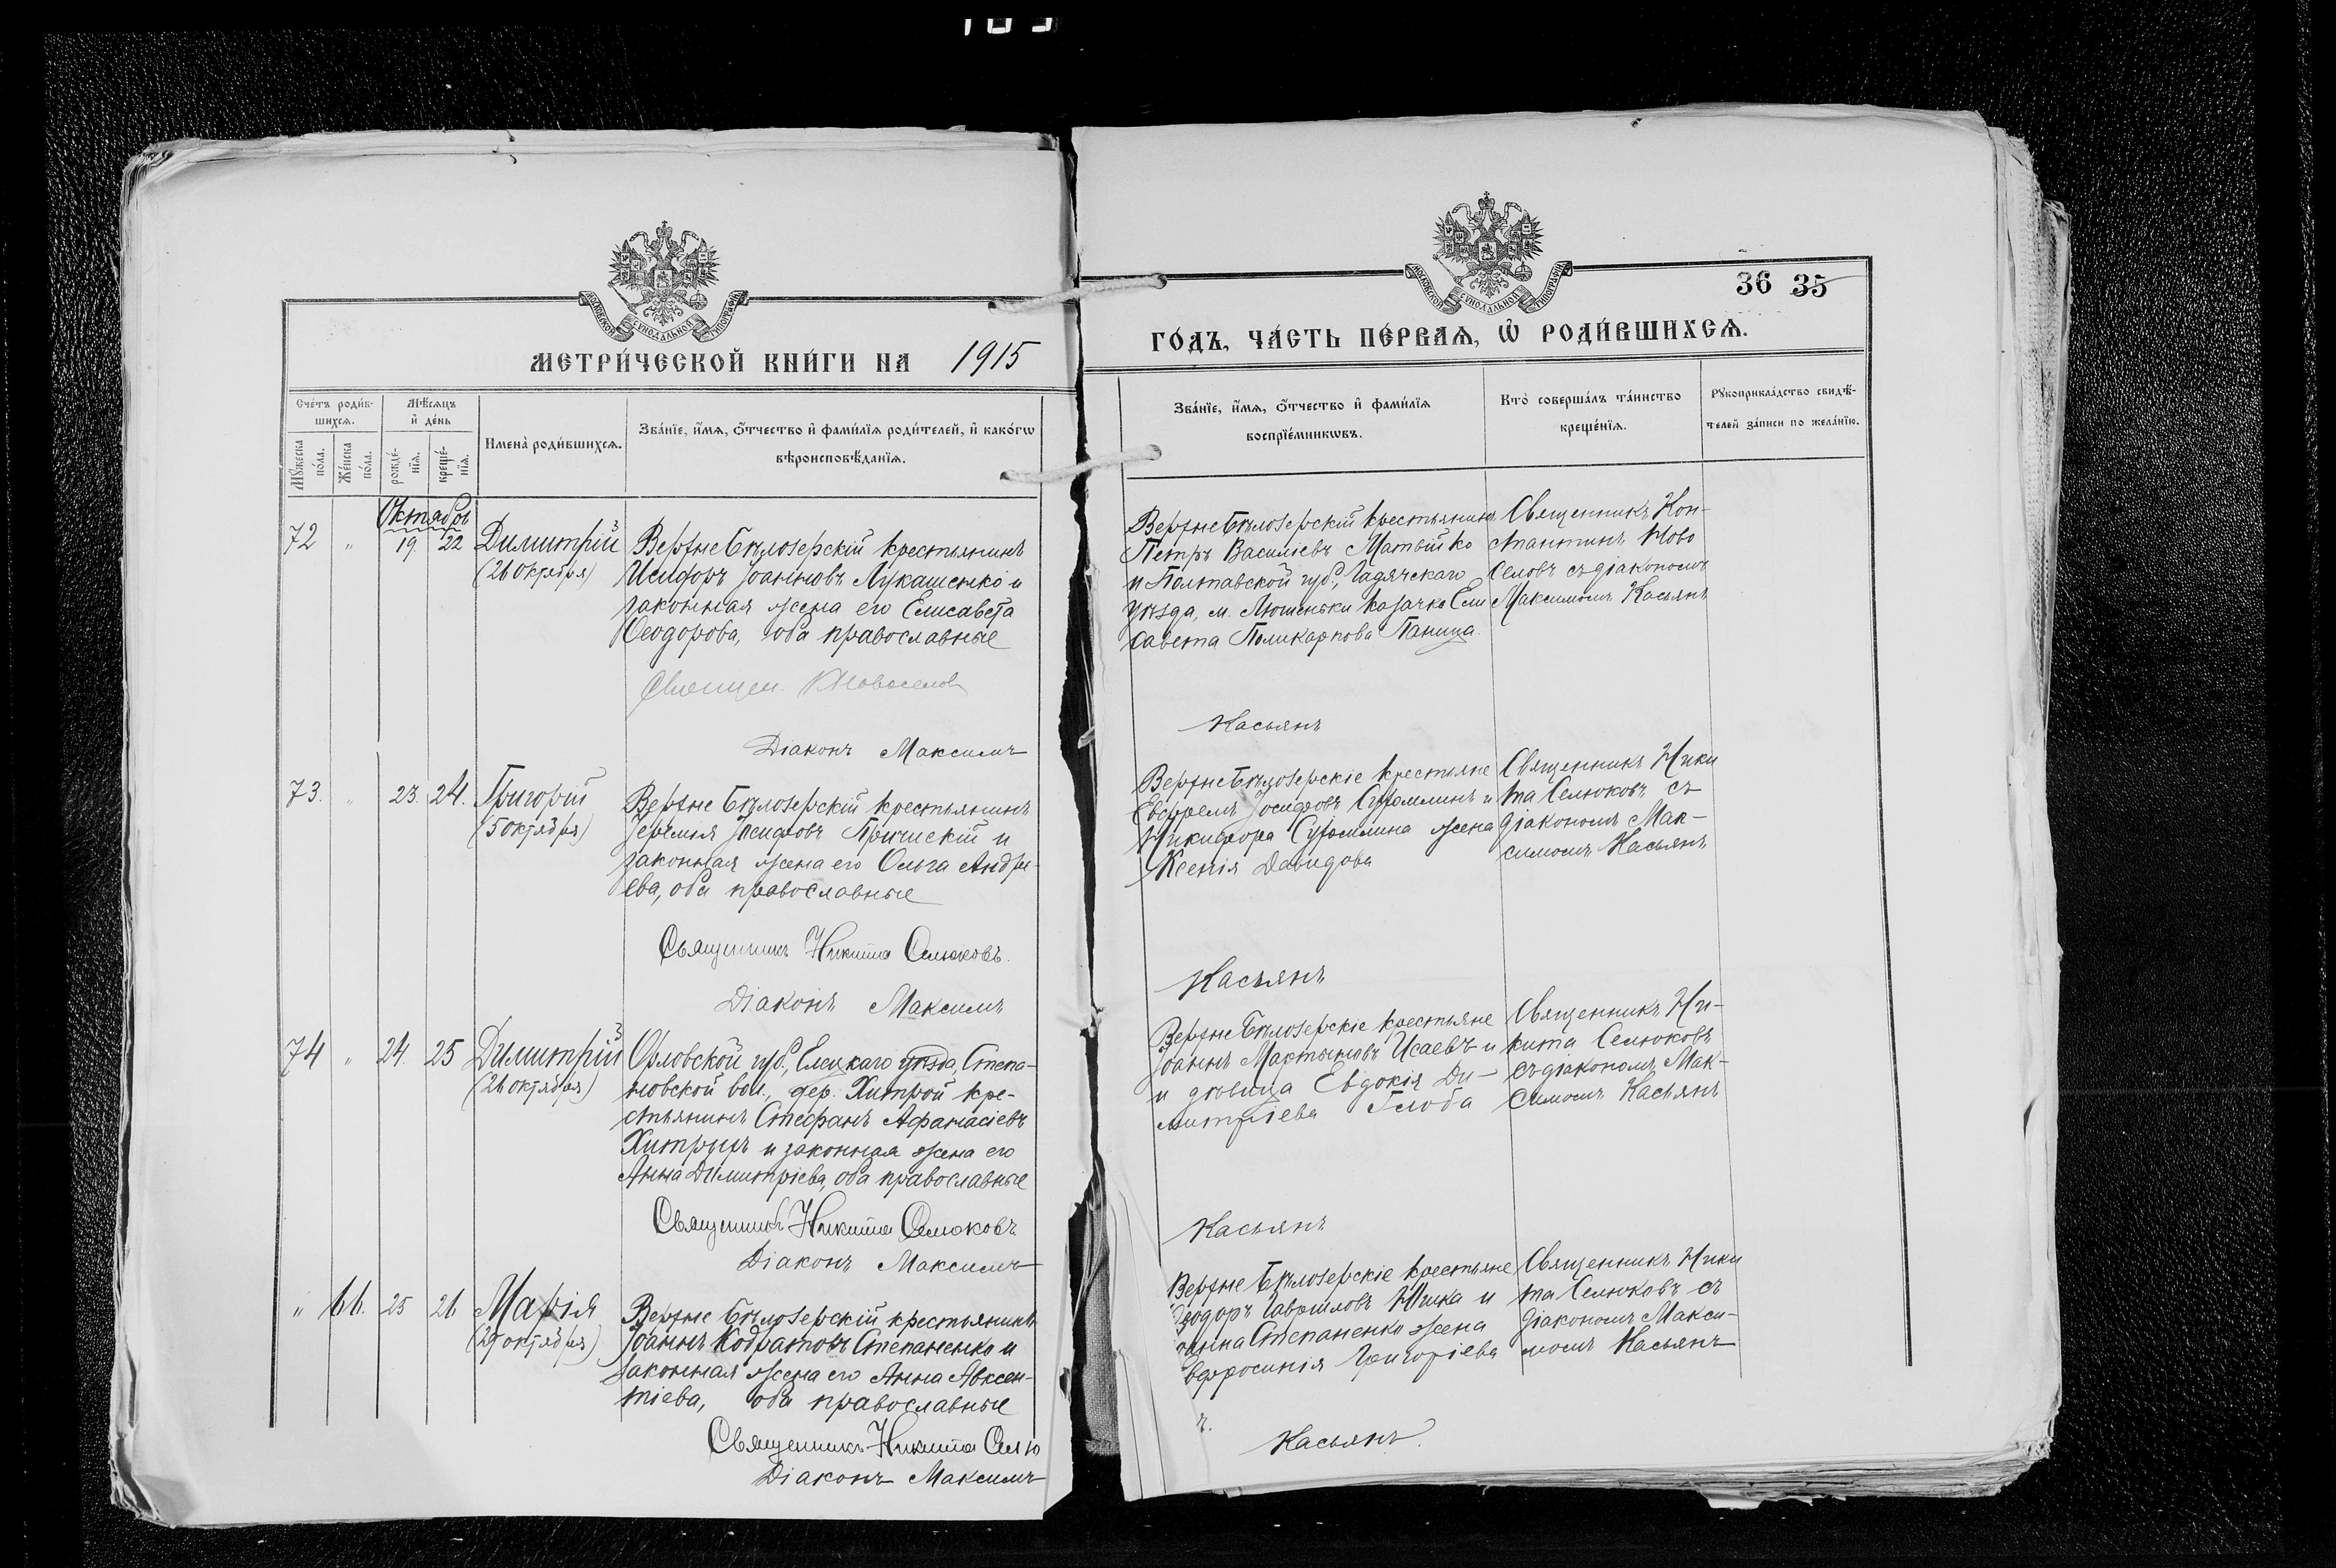 МЕТРИ́ЧЕСКОЙ КНИ́ГИ НА 1915
Сче́тъ роди́в-
шихсѧ.
Мѣ́сѧцъ
и҆ де́нь
Мꙋ́жеска
по́ла.
Же́нска
по́ла.
рожде́-
нїѧ.
креще́-
нїѧ.
Имена̀ роди́вшихсѧ.
Зва́нїе, и҆́мѧ, ѻ҆́тчество и҆ фами́лїѧ роди́телей, и҆ како́гѡ
вѣроисповѣ́данїѧ.
Октябрь
72 " 19. 22 Димитрій
(26 октября)
Верхне Бѣлозерскій крестьянинъ
Исидоръ Іоанновъ Лукашенко и
законная жена его Елисавета
Ѳеодорова, оба православные
Священ. К Новоселов
Діаконъ Максимъ
73. " 23. 24. Григорій
(5 октября)
Верхне Бѣлозерскій крестьянинъ
Іеремія Іосифовъ
законная жена его Ольга Андре-
ева, оба православные
Священникъ Никита Селюковъ.
Діаконъ Максимъ
74 " 24. 25 Димитрій
(26 октября)
Орловской губ., Елецкаго уѣзда, Степа-
новской вол., дер. Хитрой кре-
стьянинъ Стефанъ Афанасіевъ
Хитрыхъ и законная жена его
Анна Димитріева, оба православные
Священникъ Никита Селюковъ
Діаконъ Максимъ
" 66. 25 26 Марія
(29 октября)
Верхне Бѣлозерскій крестьянинъ
Іоаннъ Кодратовъ Степаненко и
законная жена его Анна Авксен-
тіева, оба православные
Священникъ Никита Селю
Діаконъ Максимъ
36 35
ГО́ДЪ, ЧА́СТЬ ПЕ́РВАѦ, Ѽ РОДИ́ВШИХСѦ.
Зва́нїе, и҆́мѧ, ѻ҆́тчество и҆ фами́лїѧ
воспрїе́мникѡвъ.
Кто̀ соверша́лъ та́инство
креще́нїѧ.
Рꙋкоприкла́дство свидѣ́-
телей за́писи по жела́нїю.
Верхне Бѣлозерскій крестьянинъ
Петръ Василіевъ Матвійко
и Полтавской губ., Гадячскаго
уѣзда, м. Лютеньки казачка Ели
савета Поликарпова Паница.
Священникъ Кон-
стантинъ Ново
селовъ съ діакономъ
Максимомъ Касьянъ
Касьянъ
Верхне Бѣлозерскіе крестьяне
Евфремъ Іосифовъ Сухомлинъ и
Никифора Сухомлина жена
Ксенія Давидова
Священникъ Ники
та Селюковъ съ
діакономъ Мак-
симомъ Касьянъ
Касьянъ
Верхне Бѣлозерскіе крестьяне
Іоаннъ Мартыновъ Исаевъ и
и дѣвица Евдокія Ди-
митріева Глоба
Священникъ Ни-
кита Селюковъ
съ діакономъ Мак-
симомъ Касьянъ
Касьянъ
Верхне Бѣлозерскіе крестьяне
еодоръ Гавриловъ и
Степаненко жена
вфросинія Григоріева
Священникъ Ники
та Селюковъ съ
діакономъ Макси-
момъ Касьянъ
Касьянъ.